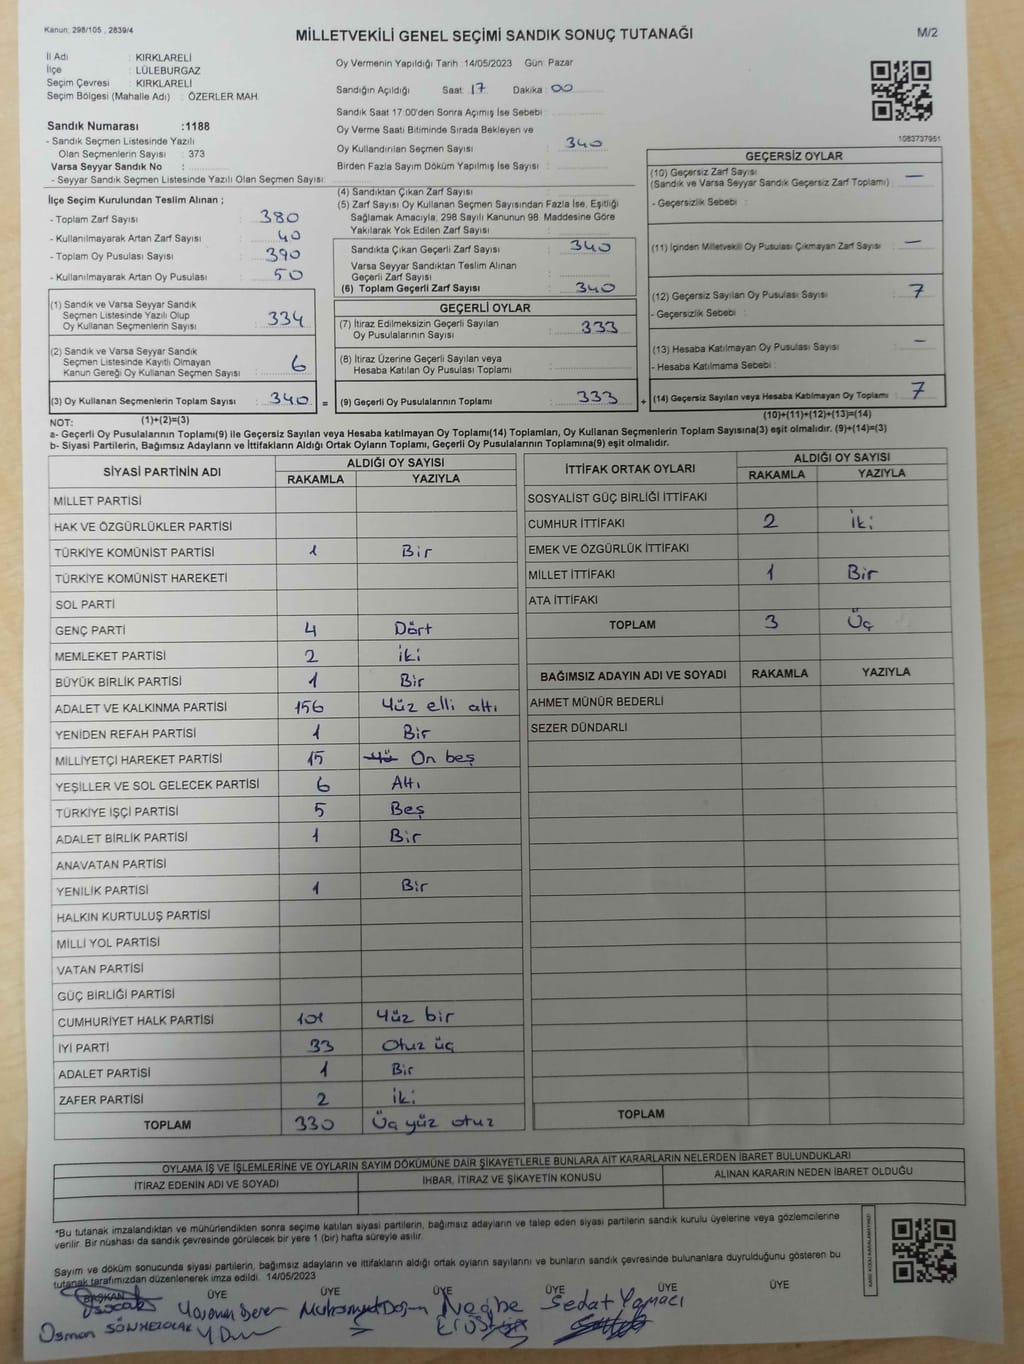 Kanun: 298/105 , 2839/4
MİLLETVEKİLİ GENEL SEÇİMİ SANDIK SONUÇ TUTANAĞI
M/2
İl Adı : KIRKLARELİ
İlçe : LÜLEBURGAZ
Seçim Çevresi : KIRKLARELİ
Seçim Bölgesi (Mahalle Adı) : ÖZERLER MAH.
Sandık Numarası :1188
- Sandık Seçmen Listesinde Yazılı
Olan Seçmenlerin Sayısı : 373
Varsa Seyyar Sandık No :
- Seyyar Sandık Seçmen Listesinde Yazılı Olan Seçmen Sayısı:
Oy Vermenin Yapıldığı Tarih :14/05/2023 Gün: Pazar
Sandığın Açıldığı Saat: 17 Dakika: 00
Sandık Saat 17:00'den Sonra Açılmış İse Sebebi :
Oy Verme Saati Bitiminde Sırada Bekleyen ve
Oy Kullandırılan Seçmen Sayısı : 340
Birden Fazla Sayım Döküm Yapılmış İse Sayısı :
1083737951
İlçe Seçim Kurulundan Teslim Alınan ;
- Toplam Zarf Sayısı : 380
- Kullanılmayarak Artan Zarf Sayısı : 40
- Toplam Oy Pusulası Sayısı : 390
- Kullanılmayarak Artan Oy Pusulası : 50
(1) Sandık ve Varsa Seyyar Sandık
Seçmen Listesinde Yazılı Olup
Oy Kullanan Seçmenlerin Sayısı : 334
(2) Sandık ve Varsa Seyyar Sandık
Seçmen Listesinde Kayıtlı Olmayan
Kanun Gereği Oy Kullanan Seçmen Sayısı : 6
(3) Oy Kullanan Seçmenlerin Toplam Sayısı : 340 =
(1)+(2)=(3)
(4) Sandıktan Çıkan Zarf Sayısı :
(5) Zarf Sayısı Oy Kullanan Seçmen Sayısından Fazla İse, Eşitliği
Sağlamak Amacıyla, 298 Sayılı Kanunun 98. Maddesine Göre
Yakılarak Yok Edilen Zarf Sayısı :
Sandıkta Çıkan Geçerli Zarf Sayısı : 340
Varsa Seyyar Sandıktan Teslim Alınan
Geçerli Zarf Sayısı :
(6) Toplam Geçerli Zarf Sayısı : 340
GEÇERLİ OYLAR
(7) İtiraz Edilmeksizin Geçerli Sayılan
Oy Pusulalarının Sayısı : 333
(8) İtiraz Üzerine Geçerli Sayılan veya
Hesaba Katılan Oy Pusulası Toplamı :
(9) Geçerli Oy Pusulalarının Toplamı : 333 +
GEÇERSİZ OYLAR
(10) Geçersiz Zarf Sayısı : —
(Sandık ve Varsa Seyyar Sandık Geçersiz Zarf Toplamı)
- Geçersizlik Sebebi :
(11) İçinden Milletvekili Oy Pusulası Çıkmayan Zarf Sayısı : —
(12) Geçersiz Sayılan Oy Pusulası Sayısı : 7
- Geçersizlik Sebebi :
(13) Hesaba Katılmayan Oy Pusulası Sayısı : —
- Hesaba Katılmama Sebebi :
(14) Geçersiz Sayılan veya Hesaba Katılmayan Oy Toplamı : 7
(10)+(11)+(12)+(13)=(14)
NOT:
a- Geçerli Oy Pusulalarının Toplamı(9) ile Geçersiz Sayılan veya Hesaba katılmayan Oy Toplamı(14) Toplamları, Oy Kullanan Seçmenlerin Toplam Sayısına(3) eşit olmalıdır. (9)+(14)=(3)
b- Siyasi Partilerin, Bağımsız Adayların ve İttifakların Aldığı Ortak Oyların Toplamı, Geçerli Oy Pusulalarının Toplamına(9) eşit olmalıdır.
SİYASİ PARTİNİN ADI ALDIĞI OY SAYISI
RAKAMLA YAZIYLA
MİLLET PARTİSİ
HAK VE ÖZGÜRLÜKLER PARTİSİ
TÜRKİYE KOMÜNİST PARTİSİ 1 Bir
TÜRKİYE KOMÜNİST HAREKETİ
SOL PARTİ
GENÇ PARTİ 4 Dört
MEMLEKET PARTİSİ 2 İki
BÜYÜK BİRLİK PARTİSİ 1 Bir
ADALET VE KALKINMA PARTİSİ 156 Yüz elli altı
YENİDEN REFAH PARTİSİ 1 Bir
MİLLİYETÇİ HAREKET PARTİSİ 15 On beş
YEŞİLLER VE SOL GELECEK PARTİSİ 6 Altı
TÜRKİYE İŞÇİ PARTİSİ 5 Beş
ADALET BİRLİK PARTİSİ 1 Bir
ANAVATAN PARTİSİ
YENİLİK PARTİSİ 1 Bir
HALKIN KURTULUŞ PARTİSİ
MİLLİ YOL PARTİSİ
VATAN PARTİSİ
GÜÇ BİRLİĞİ PARTİSİ
CUMHURİYET HALK PARTİSİ 101 Yüz bir
İYİ PARTİ 33 Otuz üç
ADALET PARTİSİ 1 Bir
ZAFER PARTİSİ 2 İki
TOPLAM 330 Üç yüz otuz
İTTİFAK ORTAK OYLARI ALDIĞI OY SAYISI
RAKAMLA YAZIYLA
SOSYALİST GÜÇ BİRLİĞİ İTTİFAKI
CUMHUR İTTİFAKI 2 İki
EMEK VE ÖZGÜRLÜK İTTİFAKI
MİLLET İTTİFAKI 1 Bir
ATA İTTİFAKI
TOPLAM 3 Üç
BAĞIMSIZ ADAYIN ADI VE SOYADI RAKAMLA YAZIYLA
AHMET MÜNÜR BEDERLİ
SEZER DÜNDARLI
TOPLAM
OYLAMA İŞ VE İŞLEMLERİNE VE OYLARIN SAYIM DÖKÜMÜNE DAİR ŞİKAYETLERLE BUNLARA AİT KARARLARIN NELERDEN İBARET BULUNDUKLARI
İTİRAZ EDENİN ADI VE SOYADI İHBAR, İTİRAZ VE ŞİKAYETİN KONUSU ALINAN KARARIN NEDEN İBARET OLDUĞU
*Bu tutanak imzalandıktan ve mühürlendikten sonra seçime katılan siyasi partilerin, bağımsız adayların ve talep eden siyasi partilerin sandık kurulu üyelerine veya gözlemcilerine
verilir. Bir nüshası da sandık çevresinde görülecek bir yere 1 (bir) hafta süreyle asılır.
Sayım ve döküm sonucunda siyasi partilerin, bağımsız adayların ve ittifakların aldığı ortak oyların sayılarını ve bunların sandık çevresinde bulunanlara duyurulduğunu gösteren bu
tutanak tarafımızdan düzenlenerek imza edildi. 14/05/2023
BAŞKAN ÜYE ÜYE ÜYE ÜYE ÜYE ÜYE
Negihe Sedat Yamacı
Osman